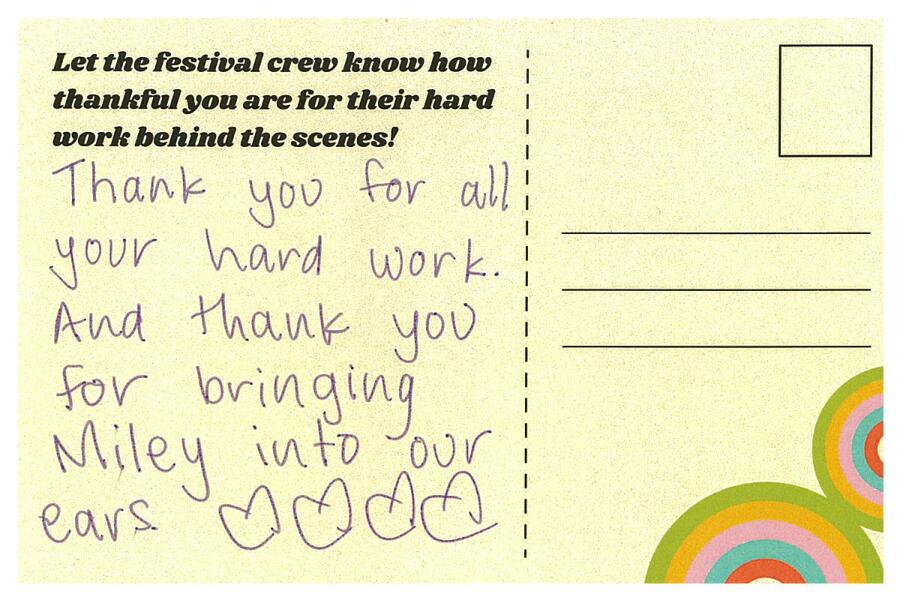 Let the festival crew know how
thankful you are for their hard
work behind the scenes!
Thank you for all
your hard work.
And thank you
for bringing
Miley into our
ears.